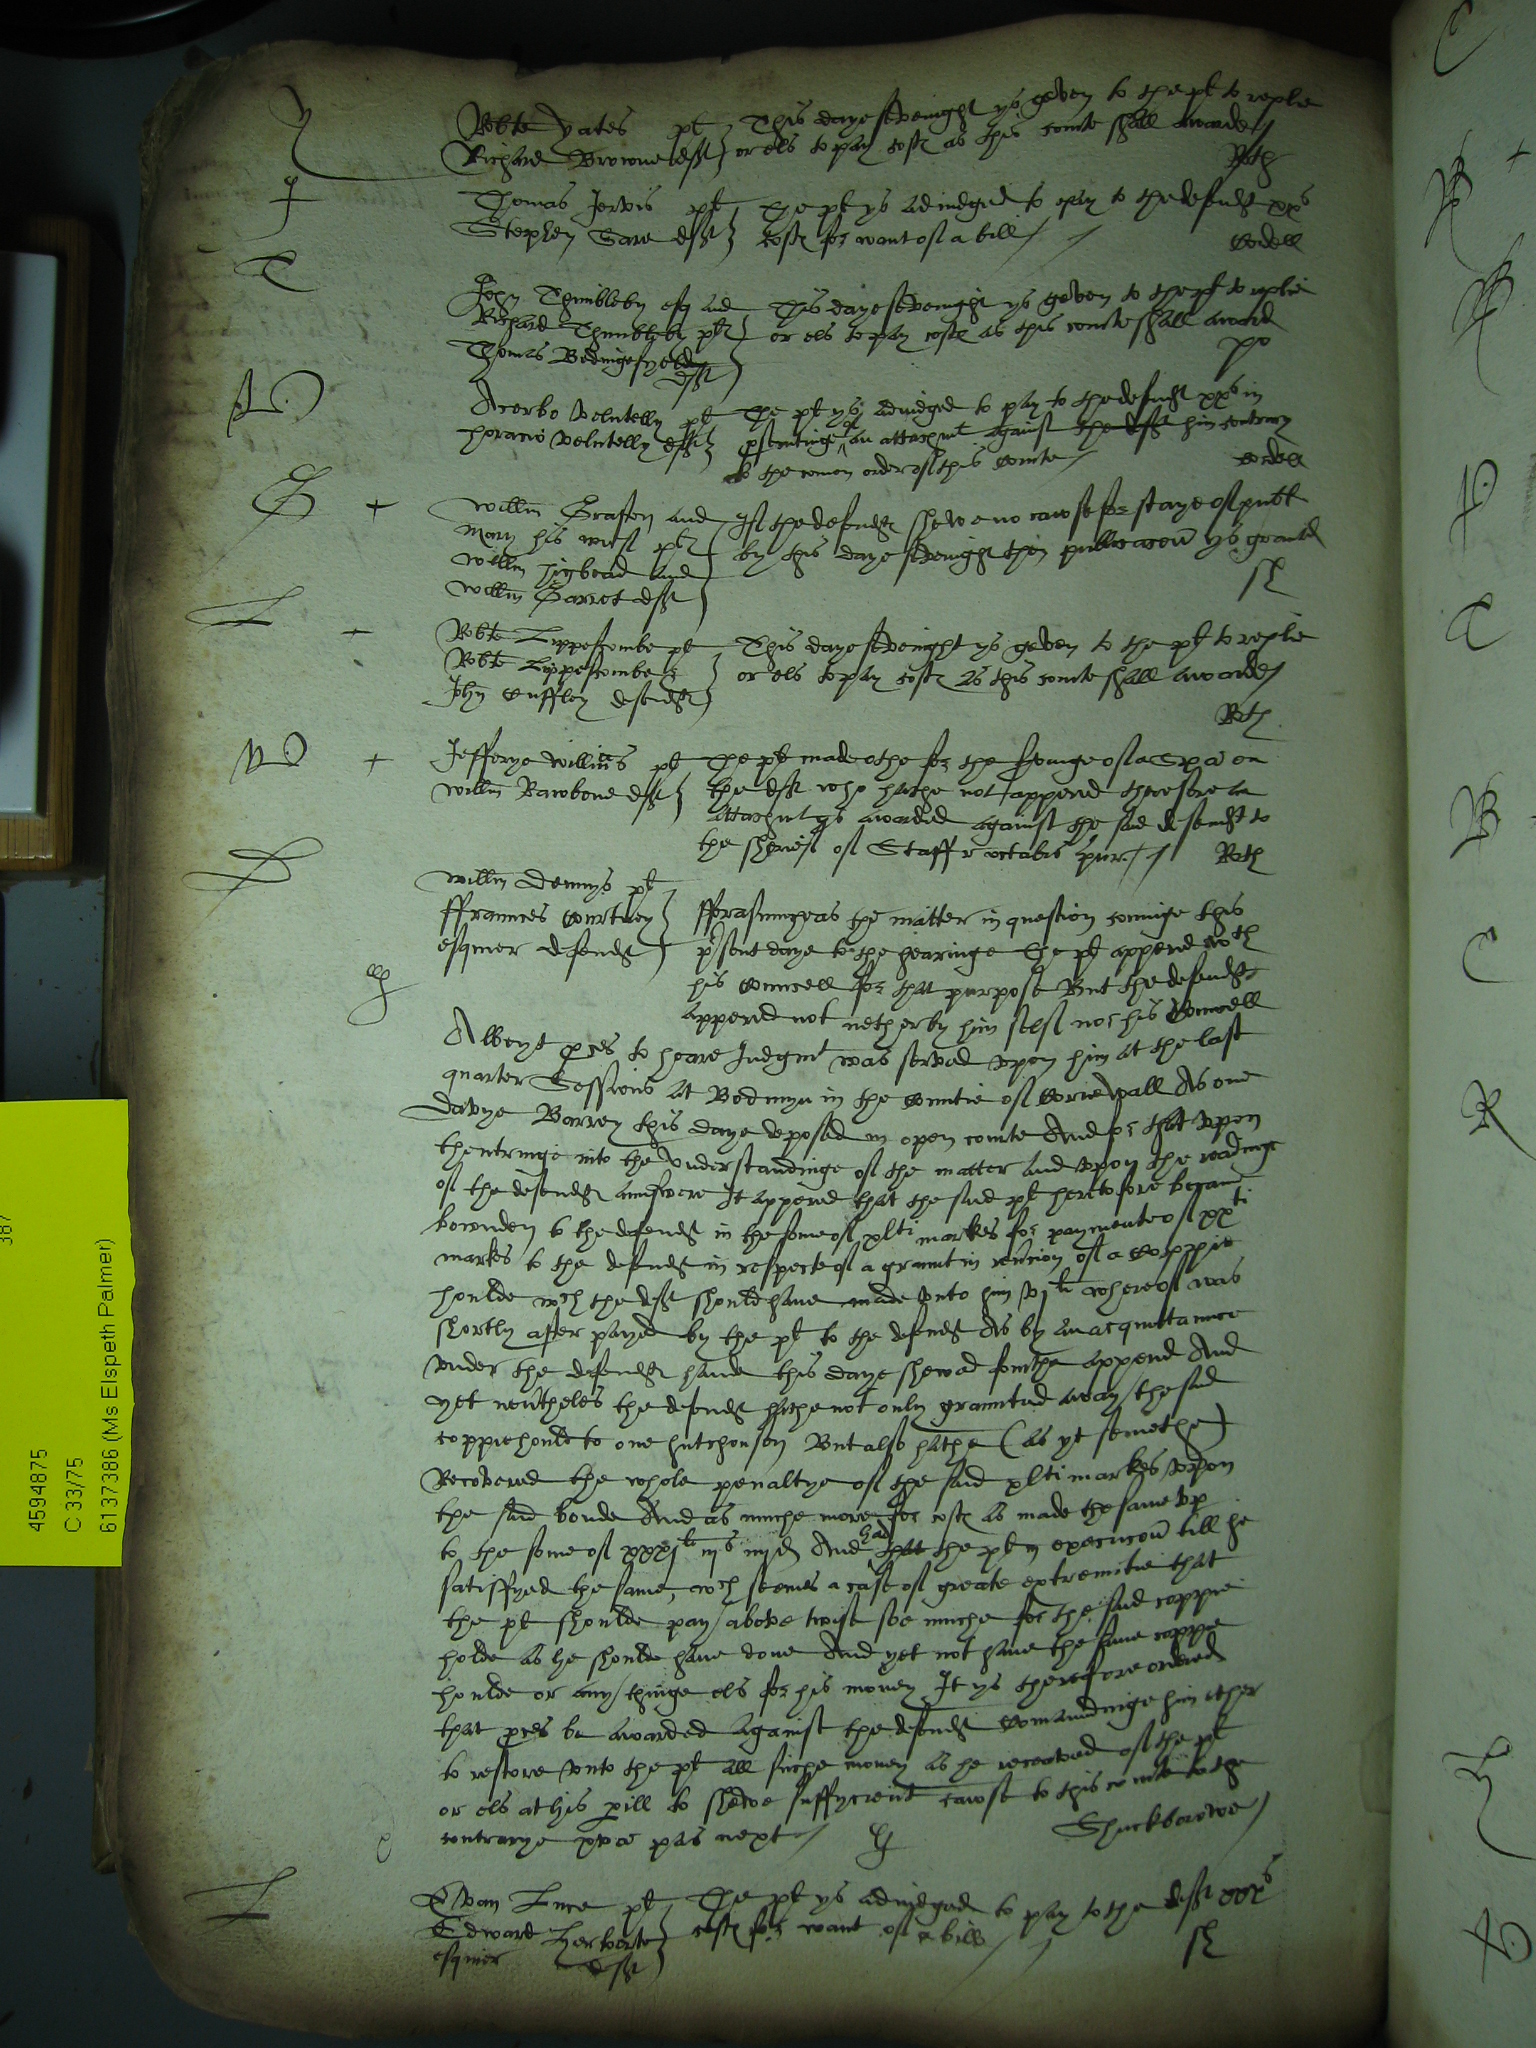 Y
Robte Yates plt } This daye sevenight ys geven to the plt to replie
Richard Browne deft } or els to pay costs as this courte shall awarde /
Rich
J
Thomas Jervis plt } The plt ys adiudged to pay to the defendt xxs
Stephen Gare deft } costs for want of a bill /
Cordell
T
John Thimbleby esq and } This daye sevenight ys geven to the plt to replie
Richard Thimbleby plts } or els to pay costs as this courte shall award
Thomas Bedingefyelde
deft
po
V
Acerbo Velutelly plt } The plt ys adiudged to pay to the defendt xxs in
Horacio Velutelly deft } psentinge of an attachmt against the deft him contrary
to the comon order of this Courte /
Cordell
G +
Willm Grafton and } If the defendts shewe no cawse for staye of publ
Mary his wief plts } by this daye sevenight then publicacon ys graunted
Willm Higbead and
Willm Garret defts
L +
Robte Lippescombe plt } This daye sevenight ys geven to the plt to replie
Robte Lippescombe & } or els to pay costs as this courte shall awarde /
John Cuffley defendts
Rich
W +
Jefferye Willms plt } The plt made othe for the servinge of a Spa on
Willm Rawbone deft } the deft who hathe not appered therefore an
attachmt ys awarded against the said defendt to
the shrief of Staff r octabis pur. /
Rich
D
Willm Dennys plt
Ffraunces Courtney } Fforasmuch as the matter in question cominge this
esquier defendt } psent daye to the hearinge The plt appered wth
his Councell for that purpose But the defendt
appered not nether by him self nor his Councell
Albeyt pces to heare Iudgmt was served vpon him at the last
quarter Sessions at Bodmyn in the Countie of Cornewall As one
Davye Barrey this daye deposed in open courte And for that vpon
thentringe into the vnderstandinge of the matter and vpon the readinge
of the defendts aunswere It appered that the said plt heretofore became
bounden to the defendt in the some of xlti markes for paymente of xxti
markes to the defendt in respecte of a graunt in reucion of a Coppie
houlde wch the deft should have made vnto him vjli whereof was
shortly after payed by the plt to the defendt As by an acquittaunce
vnder the defendts hand this daye shewed fourthe appered And
yet neutheles the defendt hathe not only graunted away the said
coppiehoulde to one Hutchonson But also hathe (as yt semethe)
Recovered the whole penaltye of the said xlti markes vpon
the said bonde And as muche more for costs as made the same vp
to the some of xxxjli iijs iiijd And had that the plt in execucon till he
satisffyed the same, wch seemes a case of greate extremitie that
the plt shoulde pay above twise soe muche for the said coppie
holde as he shoulde have done And yet not have the same coppie
houlde or any thinge els for his money It ys therefore ordered
that pces be awarded against the defendt Comaundinge him ether
to restore vnto the plt all suche money as he receaved of the plt
or els at his pill to shewe suffycient cawse to this courte to the
contrarye xvna pas next /
Shuckborowe /
L
Evan Luce plt } The plt ys adiudged to pay to the deft xxs
Edward Herberte } costs for want of a bill /
esquier deft
4594875
C 33/75
6137386 (Ms Elspeth Palmer)
387